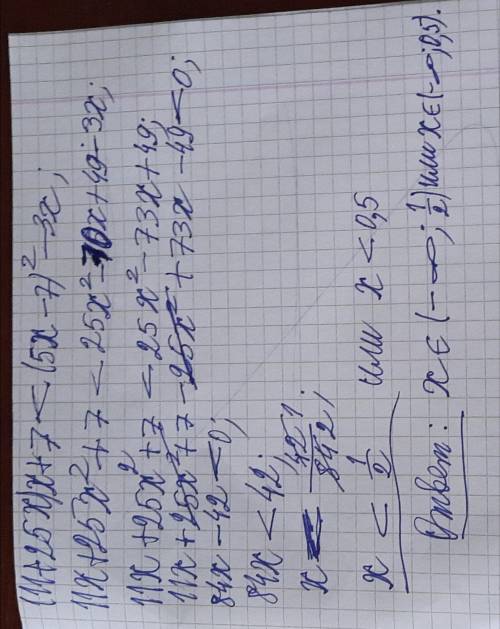 (11+25x)x+7<(5x-7)²-3x;
11x+25x²+7<25x²-70x+49-3x;
11x+25x²+7<25x²-73x+49;
11x+25x²+7-25x²+73x-49<0;
84x-42<0;
84x<42;
x<42 1/84 2;
x<1/2 или x<0,5
Ответ: x∈(-∞;1/2) или x∈(-∞;0,5).